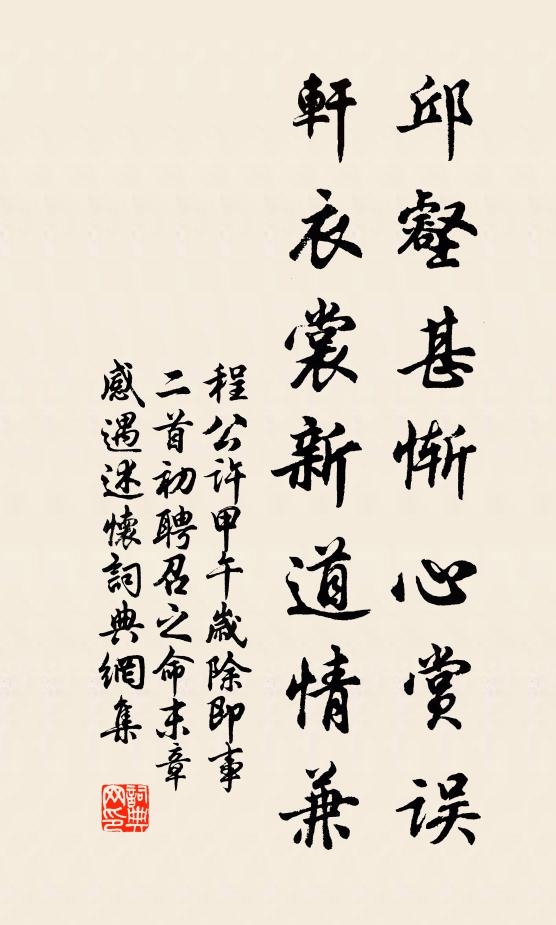 邱壑甚惭心赏误
軒衣裳新道情兼
程公许甲午歲除即事
二首初聘召之命末章
感遇述懷詞典網集
詞典
网印